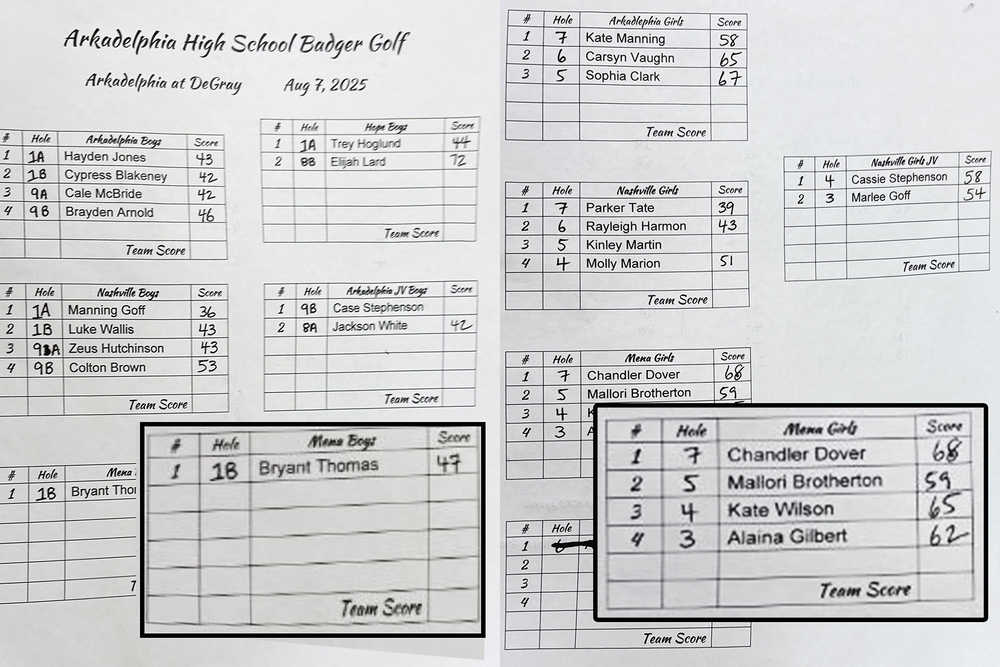 Arkadelphia High School Badger Golf
Arkadelphia at DeGray Aug 7, 2025
# Hole Arkadelphia Boys Score
1 1A Hayden Jones 43
2 1B Cypress Blakeney 42
3 9A Cale McBride 42
4 9B Brayden Arnold 46
Team Score
# Hole Hope Boys Score
1 1A Trey Hoglund 44
2 8B Elijah Lard 72
Team Score
# Hole Nashville Boys Score
1 1A Manning Goff 36
2 1B Luke Wallis 43
3 9A Zeus Hutchinson 43
4 9B Colton Brown 53
Team Score
# Hole Arkadelphia JV Boys Score
1 9B Case Stephenson
2 8A Jackson White 42
Team Score
# Hole Mena
1 1B Bryant Thor
T
# Hole Mena Boys Score
1 1B Bryant Thomas 47
Team Score
# Hole Arkadlephia Girls Score
1 7 Kate Manning 58
2 6 Carsyn Vaughn 65
3 5 Sophia Clark 67
Team Score
# Hole Nashville Girls JV Score
1 4 Cassie Stephenson 58
2 3 Marlee Goff 54
Team Score
# Hole Nashville Girls Score
1 7 Parker Tate 39
2 6 Rayleigh Harmon 43
3 5 Kinley Martin
4 4 Molly Marion 51
Team Score
# Hole Mena Girls Score
1 7 Chandler Dover 68
2 5 Mallori Brotherton 59
3 4 K
4 3 A
# Hole Mena Girls Score
1 7 Chandler Dover 68
2 5 Mallori Brotherton 59
3 4 Kate Wilson 65
4 3 Alaina Gilbert 62
Team Score
# Hole
1 6
2
3
4
Team Score